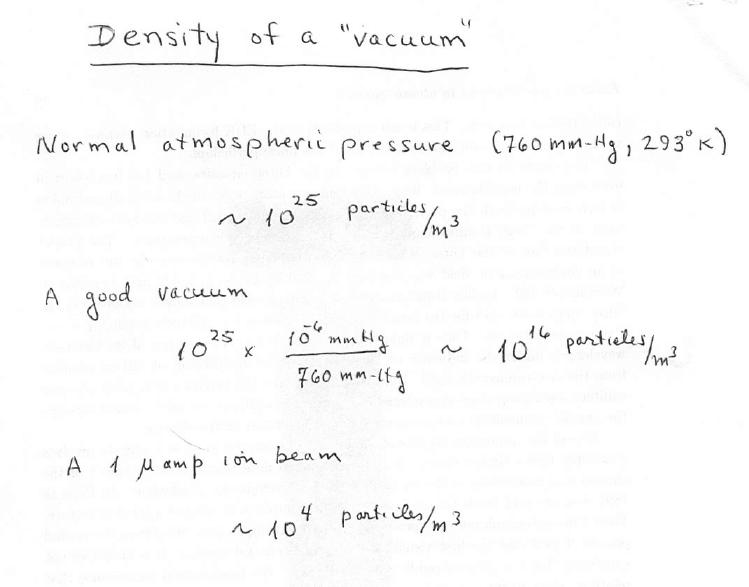 Density of a "vacuum"
Normal atmospheric pressure (760 mm-Hg, 293°K)
~ 10²⁵ particles/m³
A good vacuum
10²⁵ × 10⁻⁶ mm Hg / 760 mm-Hg ~ 10¹⁶ particles/m³
A 1 μ amp ion beam
~ 10⁴ particles/m³